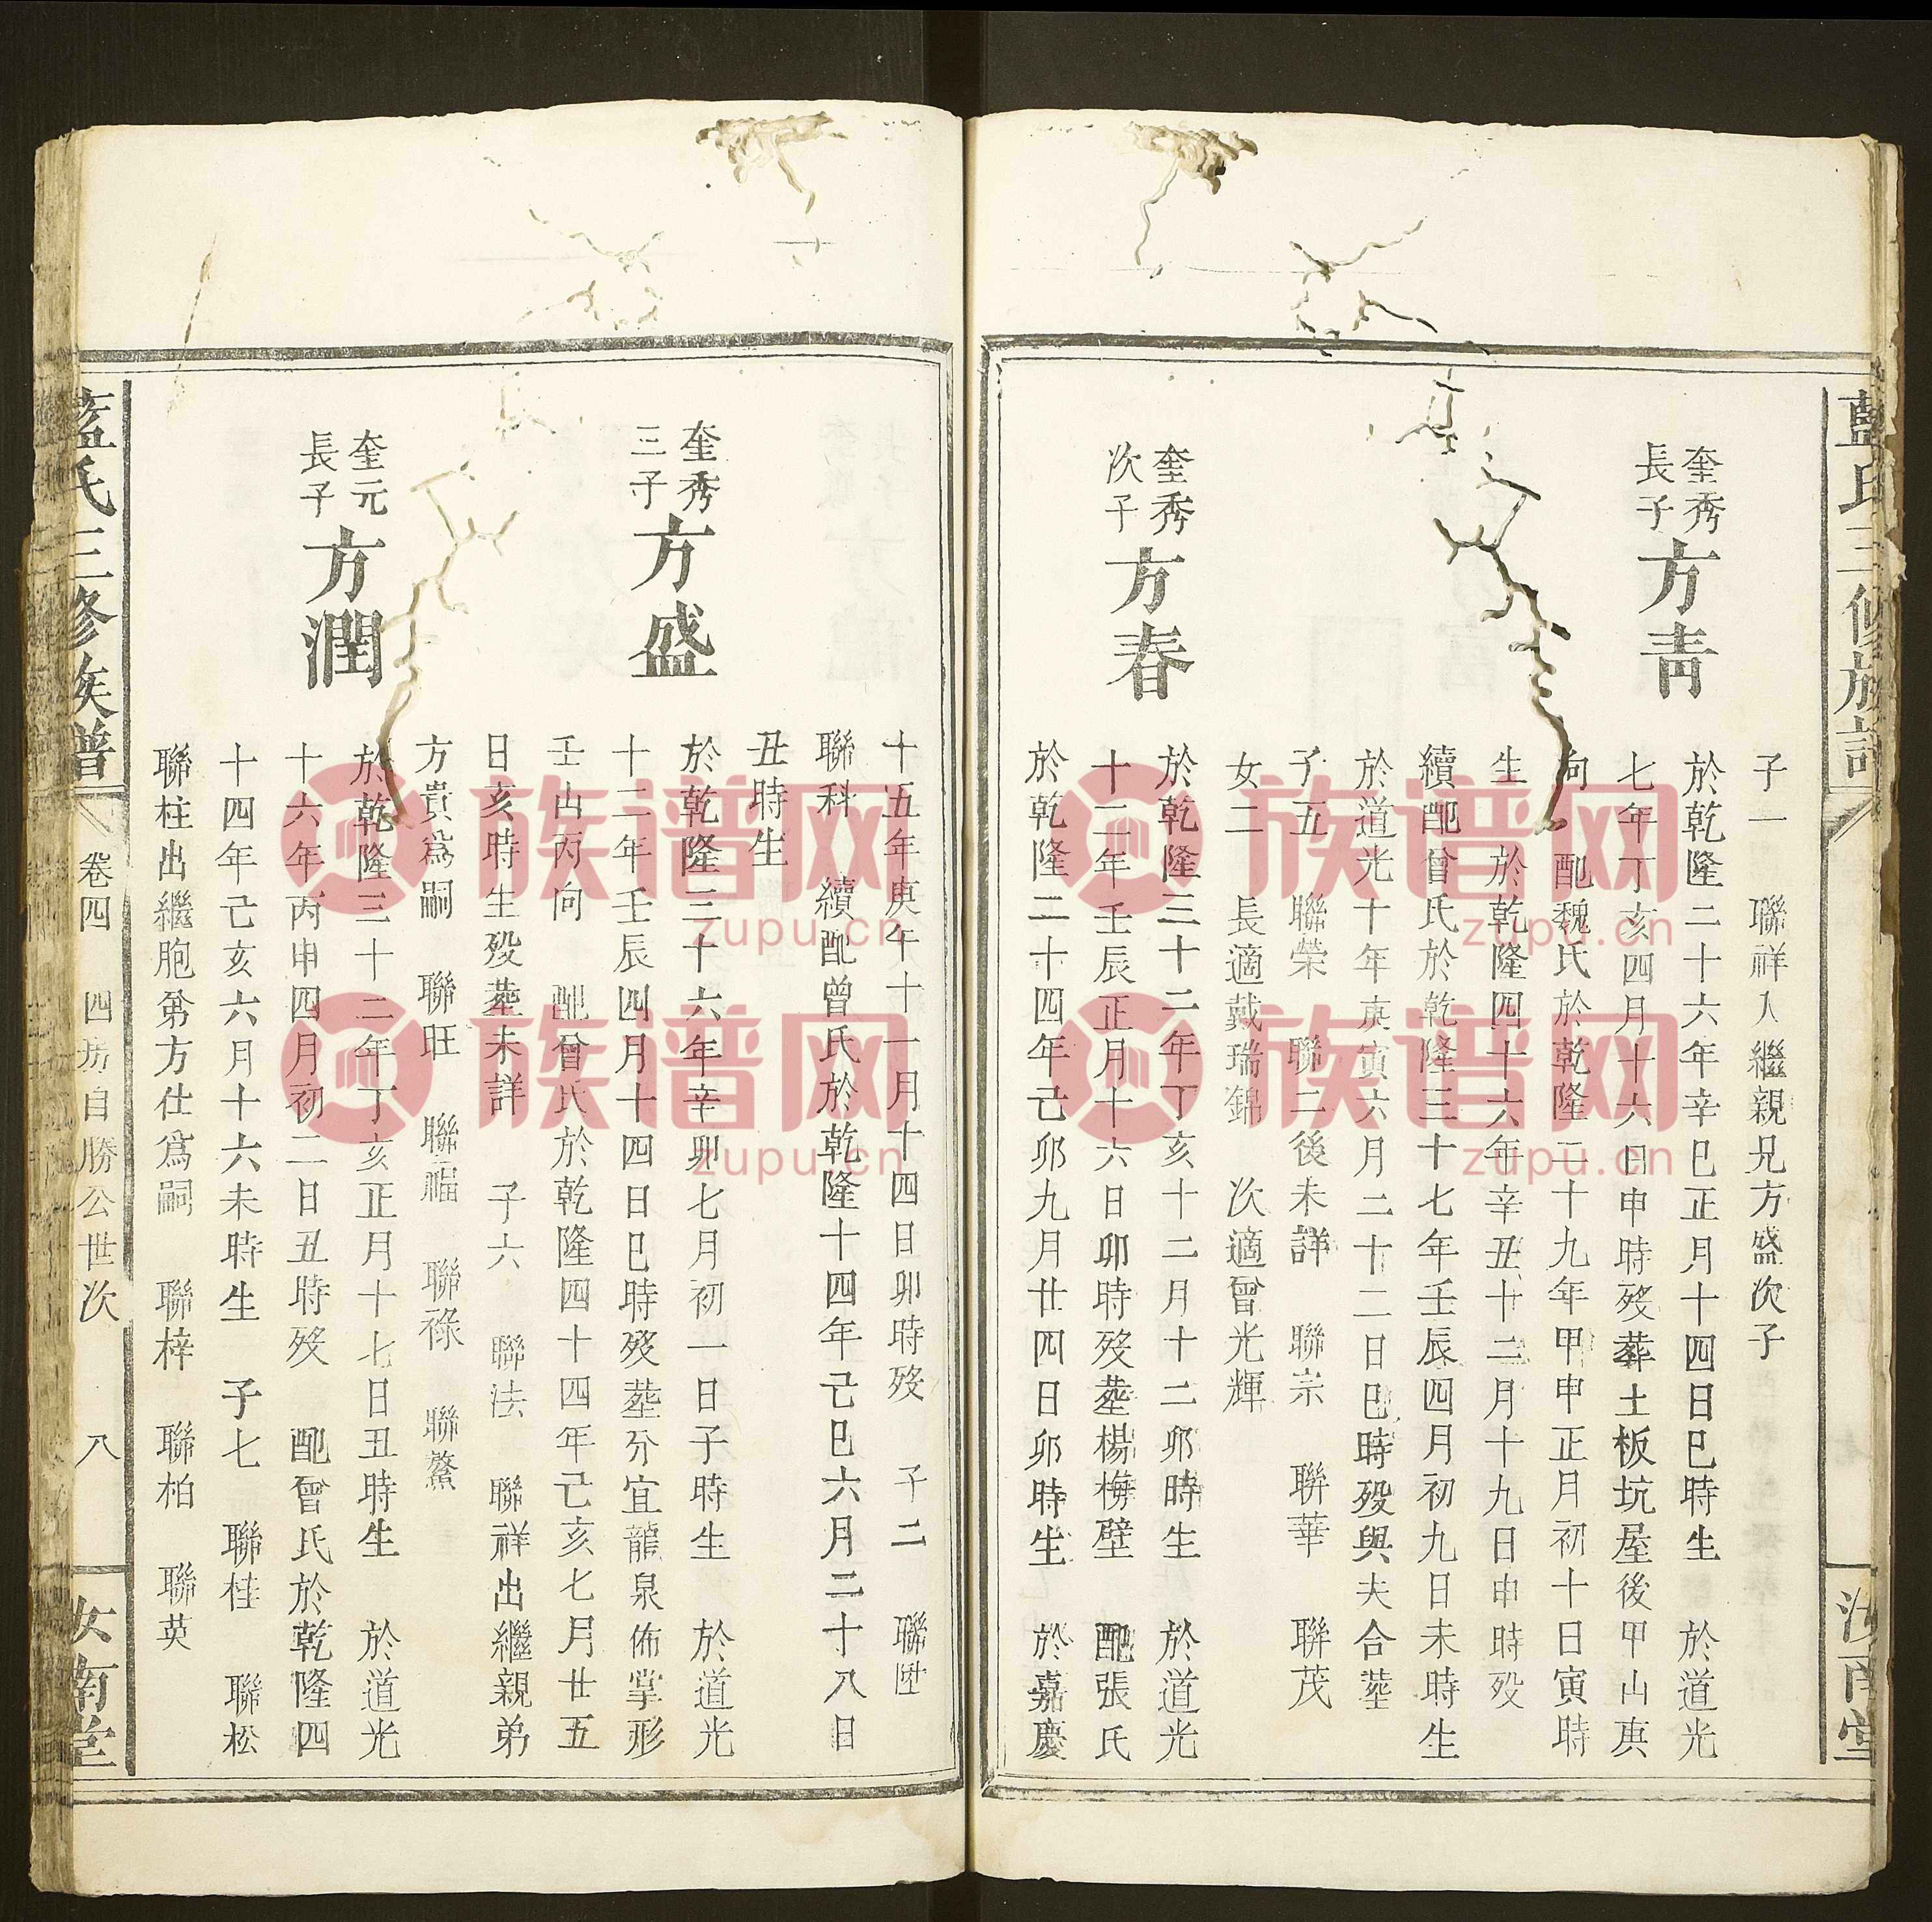 藍氏三修族譜
汝南堂
子一 聯祥人繼親兄方盛次子
奎秀長子
方青
於乾隆二十六年辛巳正月十四日巳時生 於道光
七年丁亥四月十六日申時歿葬土板坑屋後甲山庚
向 配魏氏於乾隆二十九年甲申正月初十日寅時
生 於乾隆四十六年辛丑十二月十九日申時歿
續配曾氏於乾隆三十七年壬辰四月初九日未時生
於道光十年庚寅六月二十二日巳時歿與夫合塟
子五 聯榮 聯二後未詳 聯宗 聯華 聯茂
女二 長適戴瑞錦 次適曾光輝
奎秀次子
方春
於乾隆三十二年丁亥十二月十二卯時生 於道光
十二年壬辰正月十六日卯時歿塟楊梅壁 配張氏
於乾隆二十四年己卯九月廿四日卯時生 於嘉慶
十五年庚午十一月十四日卯時歿 子二 聯陞
聯科 續配曾氏於乾隆十四年己巳六月二十八日
丑時生
奎秀三子
方盛
於乾隆三十六年辛卯七月初一日子時生 於道光
十二年壬辰四月十四日巳時歿塟分宜龍泉佈掌形
壬山丙向 配曾氏於乾隆四十四年己亥七月廿五
日亥時生歿塟未詳 子六 聯法 聯祥出繼親弟
方貴爲嗣 聯旺 聯福 聯祿 聯鰲
奎元長子
方潤
於乾隆三十二年丁亥正月十七日丑時生 於道光
十六年丙申四月初二日丑時歿 配曾氏於乾隆四
十四年己亥六月十六未時生 子七 聯桂 聯松
聯柱出繼胞弟方仕爲嗣 聯梓 聯柏 聯英
藍氏三修族譜
卷四 四房自勝公世次 八
汝南堂
族谱网
zupu.cn
族谱网
zupu.cn
族谱网
zupu.cn
族谱网
zupu.cn